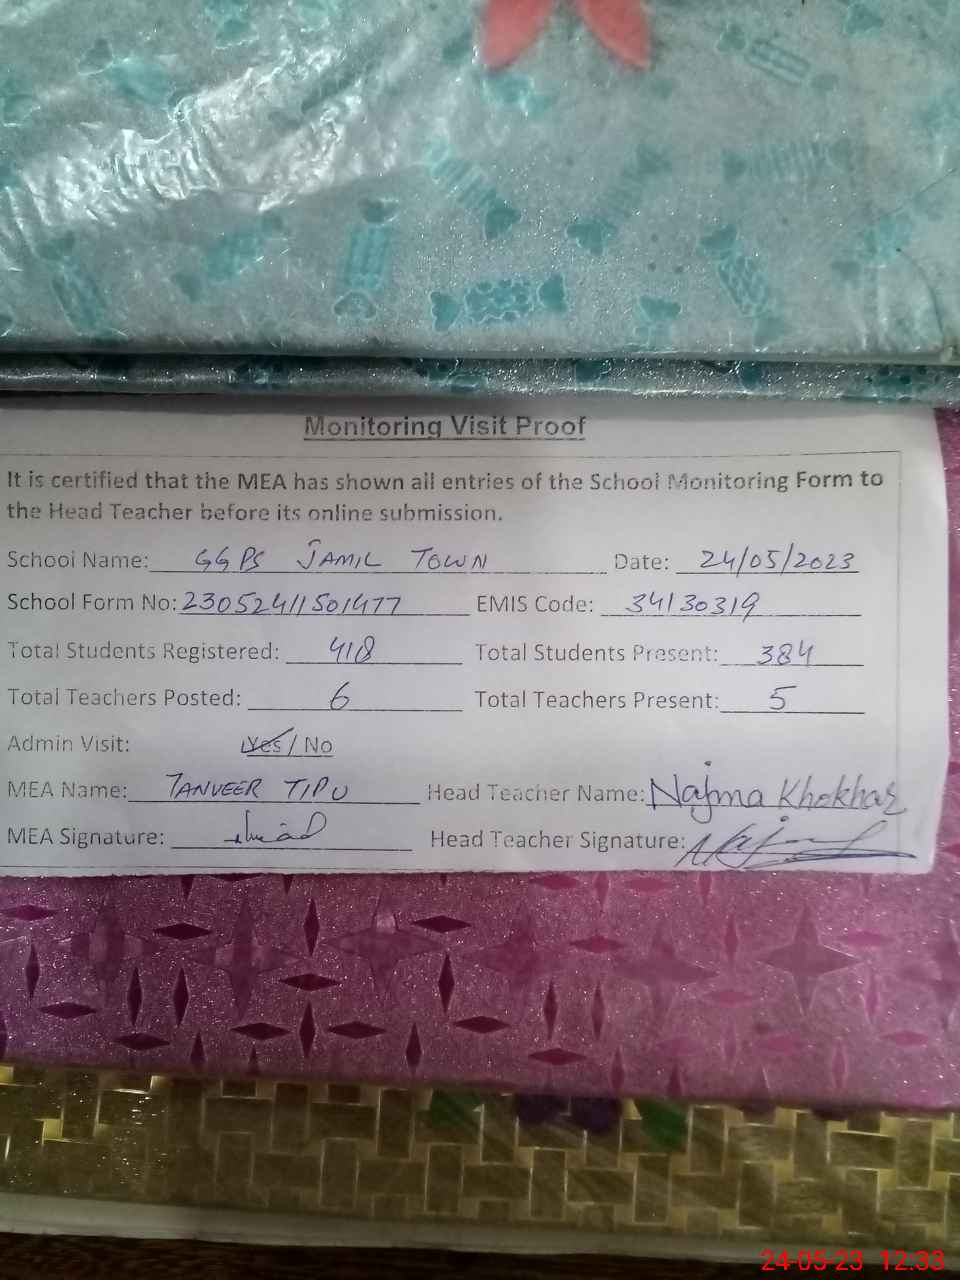 Monitoring Visit Proof
It is certified that the MEA has shown all entries of the School Monitoring Form to
the Head Teacher before its online submission.
School Name: GGPS JAMIL TOWN Date: 24/05/2023
School Form No: 23052411501477 EMIS Code: 34130319
Total Students Registered: 418 Total Students Present: 384
Total Teachers Posted: 6 Total Teachers Present: 5
Admin Visit: Yes / No
MEA Name: TANVEER TIPU Head Teacher Name: Najma Khokhar
MEA Signature: Head Teacher Signature:
24-05-23 12:33